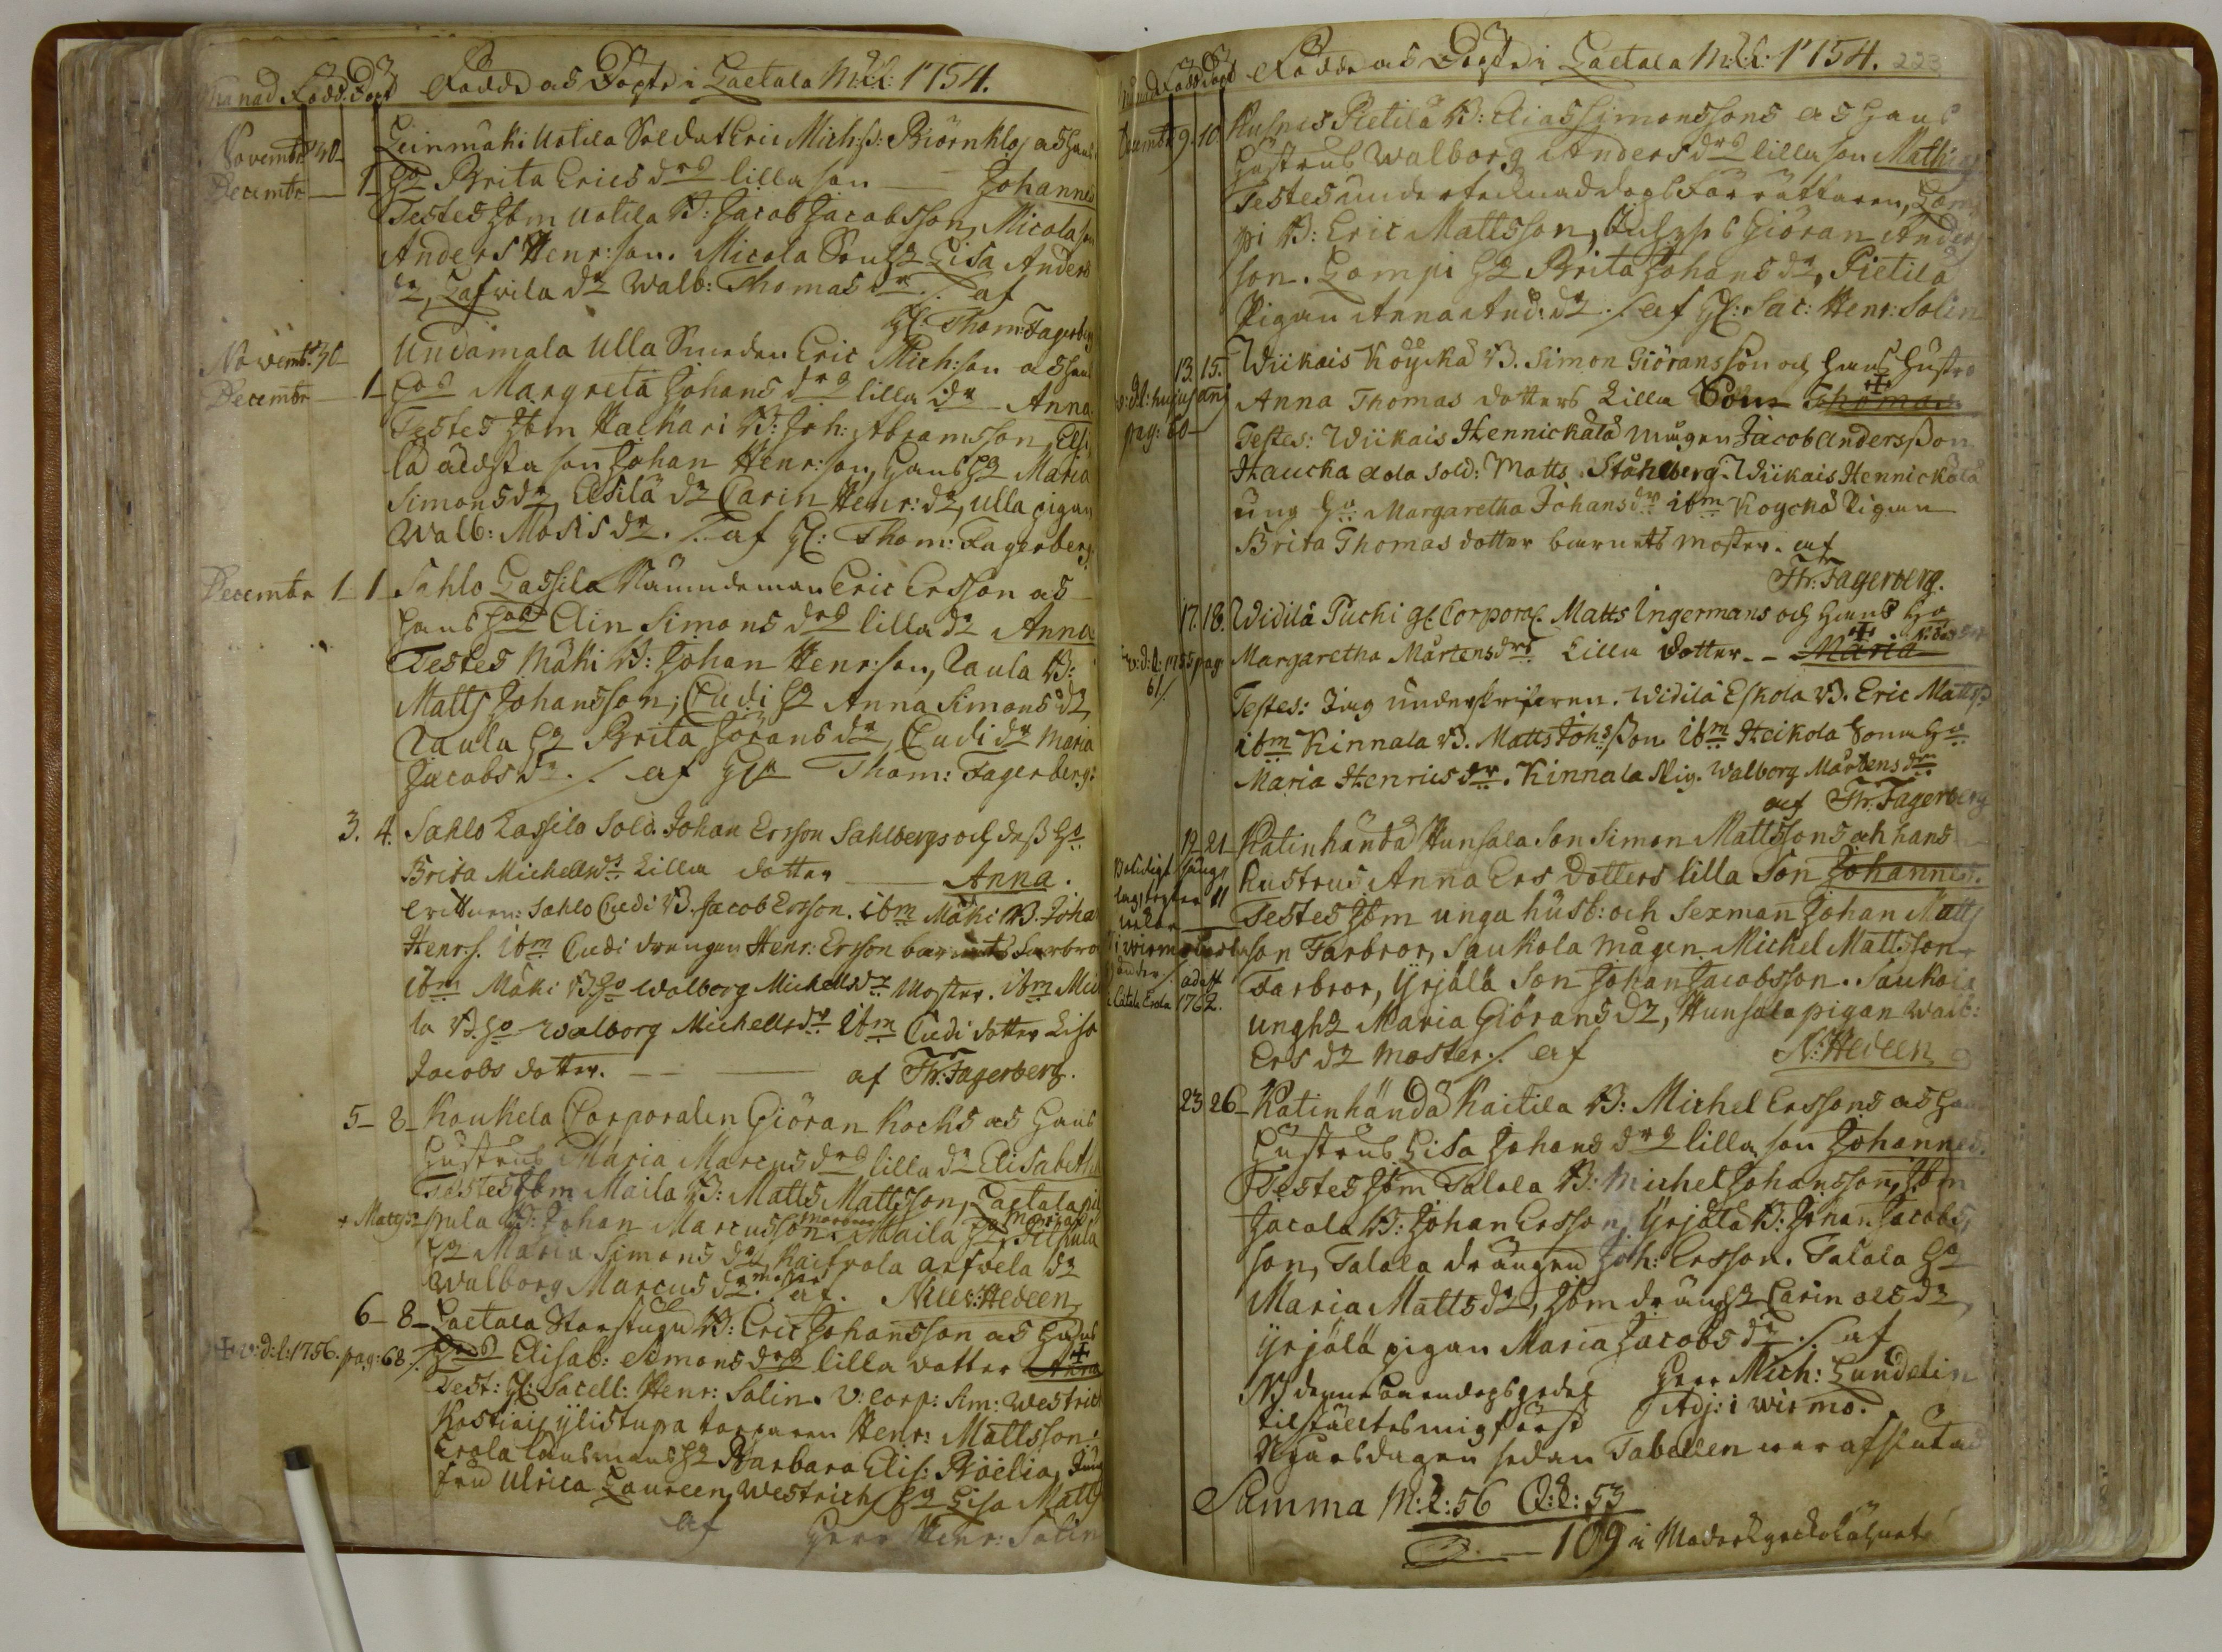 Månad Född. Döpt Födde och Döpte i Laetala M:K: 1754.
Novembr 30 Leinmäki Uotila Soldat Eric Mich:s: Biörnklo och hans
Decembr 1 Ho Brita Erics drs lilla son Johannes
Testes Ibm Uotila B: Jacob Jacobsson, Micola son
Anders Henr:son. Micola Sonhu Lisa Anders
dr, Lafvila dr Walb: Thomas dr ./. af
H: Thom: Fagerberg
Novembr 30 Undamala Ulla Smeden Eric Mich:son och hans
Decembr 1 Hos Margreta Johans drs lilla dr Anna
Testes Ibm Kachari B: Joh: Abramsson,
lä äldsta son Johan Henr:son, hans Hu Maria
Simons dr, Eesilä dr Carin Henr: dr, Ulla pigan
Walb: Mosis dr ./. af H: Thom: Fagerberg.
Decembr 1 1 Sahlo Lassila Nämndeman Eric Ersson och
hans Hos Elin Simons drs lilla dr Anna
Testes Mäki B: Johan Henr:son, Taula B:
Matts Johansson; Cudi Hu Anna Simons dr
Taula Hu Brita Jörans dr, Cudi dr Maria
Jacobs dr ./. af Thom: Fagerberg:
3. 4. Sahlo Lassila Sold. Johan Ersson Sahlbergs och dess Ho
Brita Michells dr Lilla dotter Anna.
Vittnen: Sahlo Cudi B. Jacob Ersson. ibm Mäki B. Joha
Henr.s. ibm Cudi drengen Henr: Ersson barnets farbror
ibm Mäki B. Ho Walborg Michells dr Moster. ibm
la B. Ho Walborg Michells dr ibm Cudi dotter Lisa
Jacobs dotter. af Th. Fagerberg.
5 8 Koukela Corporalen Giöran Kochs och hans
hustrus Maria Marcus drs lilla dr Elisabetha
Testes Ibm Maila B: Matts Mattsson, Laetala
pula B: Johan Marcusson morbror. Maila
Hu Maria Simons dr, Kaitrola arfvela dr
Walborg Marcus dr moster ./. af. Hedeen
6 8 Laetala Storstugu B: Eric Johansson och hans
+ v:d:l: 1756. pag: 68 Hos Elisab: Simons drs lilla dotter Anna
Test: H: Sacell: Henr: Salin. V: Corp: Sim: Westrich
Kostiais ylistupa torparen Henr: Mattsson.
Erola Länsmans Hu Barbara Elis:
fru Ulrica Laureen, Westrich Hu Lisa Matts
af Herr Henr: Salin
Månad Född Döpt Födde och Döpte i Laetala M:K: 1754. 223
Decembr 9 10 Kusnis Pietilä B: Elias Simonssons och hans
hustrus Walborg Anders drs lilla son Mathias
Testes undertecknad dops Förrättaren, Lam
pi B: Eric Mattsson, Giöran Anders
son. Lampi Hu Brita Johans dr, Pietilä
Pigan Anna And: dr ./. af H: Sac: Henr: Salin
13. 15. Wiikais Köyckä B. Simon Giöransson och hans Hustro
v:d:l: hujus ani Anna Thomas dotters Lilla Son Thomas
pag: 60 Testes: Wiikais Hennickälä mågen Jacob Andersson
Haucka aola Sold: Matts Ståhlberg. Wiikais Hennickälä
ung Ho Margaretha Johans dr ibm Köyckä Pigan
Brita Thomas dotter barnets moster. af
Th. Fagerberg.
17. 18. Widilä Puchi Corporal Matts Ingermans och hans Ho
v:d:l: 1755 pag: 61 Margaretha Mårtens drs Lilla dotter Maria
Testes: Jag underskrifvaren. Widilä Eskola B. Eric Mattss:
ibm Kinnala B. Matts Johsson ibm Heikola Sonu Ho
Maria Henrics dr. Kinnala Pig. Walborg Mårtens dr
af Th. Fagerberg
19 21 Katinhända Hunsala Son Simon Mattssons och hans
hustrus Anna Ers Dotters lilla Son Johannes.
Testes Ibm unga husb: och Sexman Johan Matts
son Farbror, Saukola mågen Michel Mattsson
adest Farbror, Yrjälä Son Johan Jacobsson. Saukola
1762. unghu Maria Giörans dr, Hunsala pigan Walb:
Ers dr moster ./. af N: Hedeen
23 26 Katinhända Kaitila B: Michel Erssons och hans
hustrus Lisa Johans drs lilla son Johannes.
Testes Ibm Talola B: Michel Johansson, Ibm
Jacola B: Johan Ersson, Yrjälä B: Johan Jacobs
son, Talola drängen Joh: Ersson. Talola Hu
Maria Matts dr, Ibm dränghu Carin Ols dr
Yrjälä pigan Maria Jacobs dr ./. af
NB denne barndopssedel Herr Mich: Lundelin
tilstältes mig först Adj: i Wirmo.
Nyårsdagen sedan Tabellen war afslutad
Summa M:K: 56 Q:K: 53
109 i Moderkyrckoförsaml